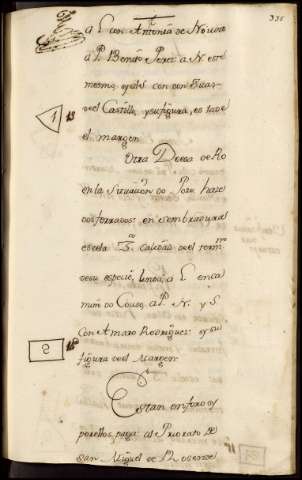 335
a L con Antonia de Novoa
a P. Benito Perez a N este
mesmo, y al S con Juan
del Castillo y su figura, es la de
el margen
1
Otra Dessa de Ro
en la Situacion do Pozo haze
dos ferrados en sembradura
es de la 3.ª calidad del term.no
de su especie, linda, a L en ca
mino de Couso, a P. N. y S
Con Amaro Rodriguez y su
figura del Margen
2
Estan en foro y
por ellos paga al Priorato de
San Miguel de Rosende